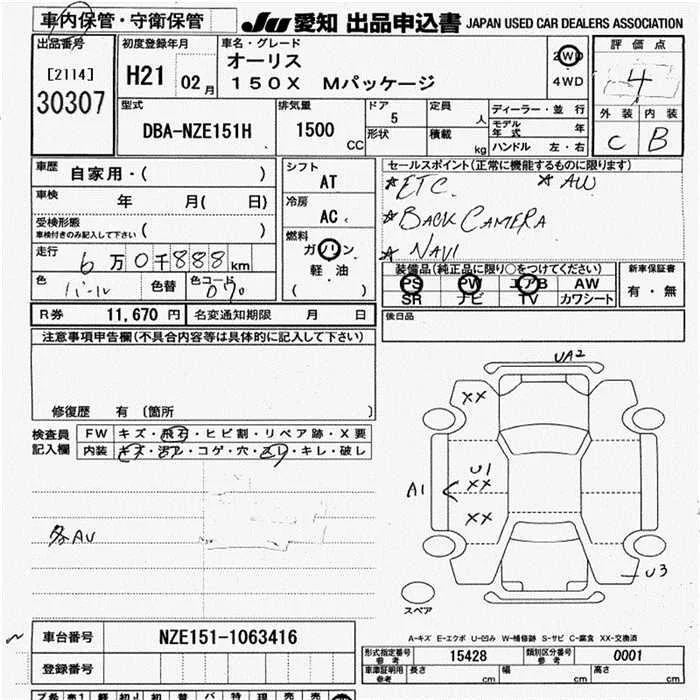 車内保管・守衛保管
JU 愛知 出品申込書 JAPAN USED CAR DEALERS ASSOCIATION
出品番号
[2114]
30307
初度登録年月
H21 02月
車名・グレード
オーリス
150X Mパッケージ
2WD
4WD
評価点
4
外装 内装
C B
型式
DBA-NZE151H
排気量
1500 CC
ドア
5
形状
定員
人
積載
kg
ディーラー・並行
モデル年式 年
ハンドル 左・右
車歴
自家用・( )
車検
年 月( 日)
受検形態
車検付きのみ記入して下さい ( )
走行
6万0千888km
色
パール
色替
色コード
070
シフト
AT
冷房
AC
燃料
ガソリン
軽油
( )
セールスポイント(正常に機能するものに限ります)
☆ETC. ☆AW
☆BACK CAMERA
☆NAVI
装備品(純正品に限り○をつけてください)
PS PW エアB AW
SR ナビ TV カワシート
新車保証書
有・無
R券 11,670円
名変通知期限 月 日
後日品
注意事項申告欄(不具合内容等は具体的に記入して下さい)
修復歴 有(箇所 )
検査員
記入欄
FW キズ・飛石・ヒビ割・リペア跡・X要
内装 キズ・汚れ・コゲ・穴・スレ・キレ・破し
各AU
UA2
XX
U1
XX
A1
XX
U3
スペア
A-キズ E-エクボ U-凹み W-補修跡 S-サビ C-腐食 XX-交換済
車台番号
NZE151-1063416
登録番号
形式指定番号
参考
15428
類別区分番号
参考
0001
車検証明用
参考
長さ cm 幅 cm 高さ cm